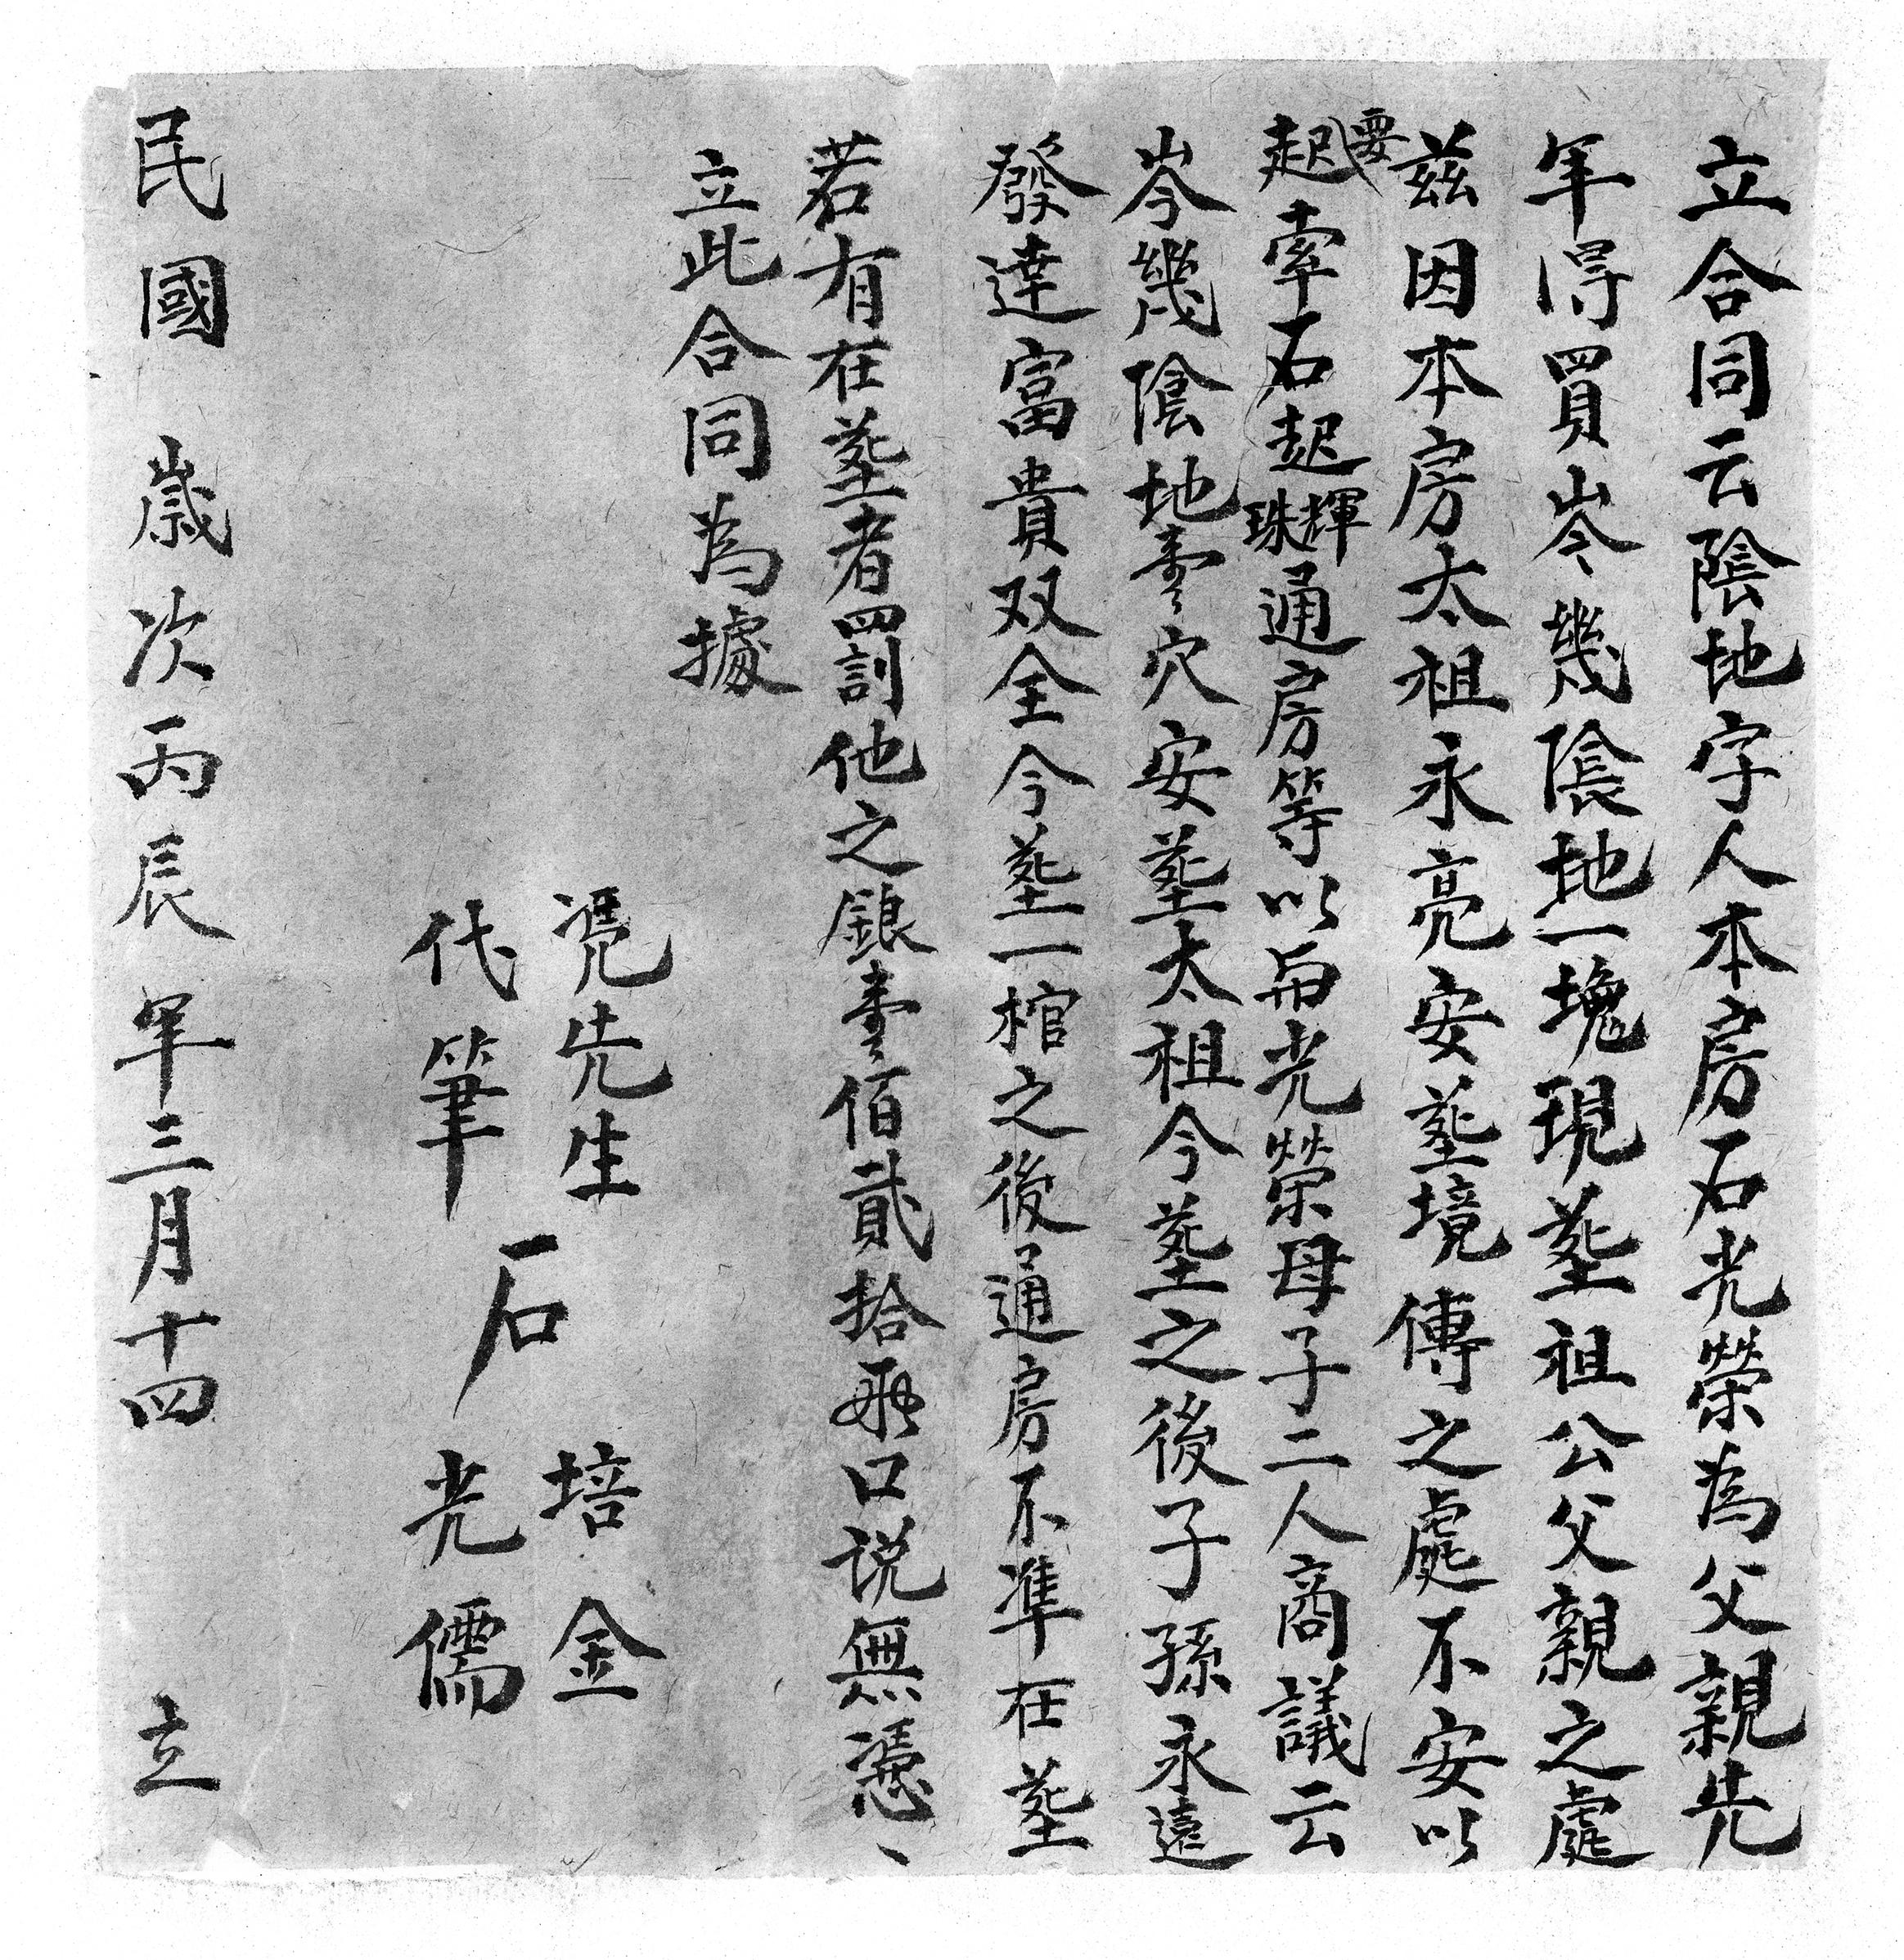 立合同云陰地字人本房石光榮為父親先
年得買岑幾陰地一塊現塟祖公父親之處
茲因本房太祖永亮安塟境傳之處不安以
要
起牽石起輝珠通房等以與光榮母子二人商議云
岑幾陰地壹穴安塟太祖今塟之後子孫永遠
發達富貴双全今塟一棺之後通房不準在塟
若有在塟者四罰他之銀壹佰貳拾両口说無憑、
立此合同為據
凴先生 石 培金
代筆 光儒
民國 歲次丙辰年三月十四 立